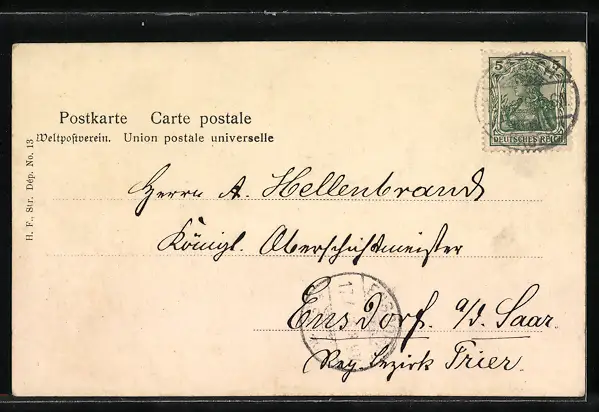 5
DEUTSCHES REICH
Postkarte Carte postale
Weltpostverein. Union postale universelle
H. F., Str. Dép. No. 13
Herrn A. Hellenbrand
Königl. Oberschichtmeister
Ensdorf. a/d. Saar.
Reg. bezirk Trier.